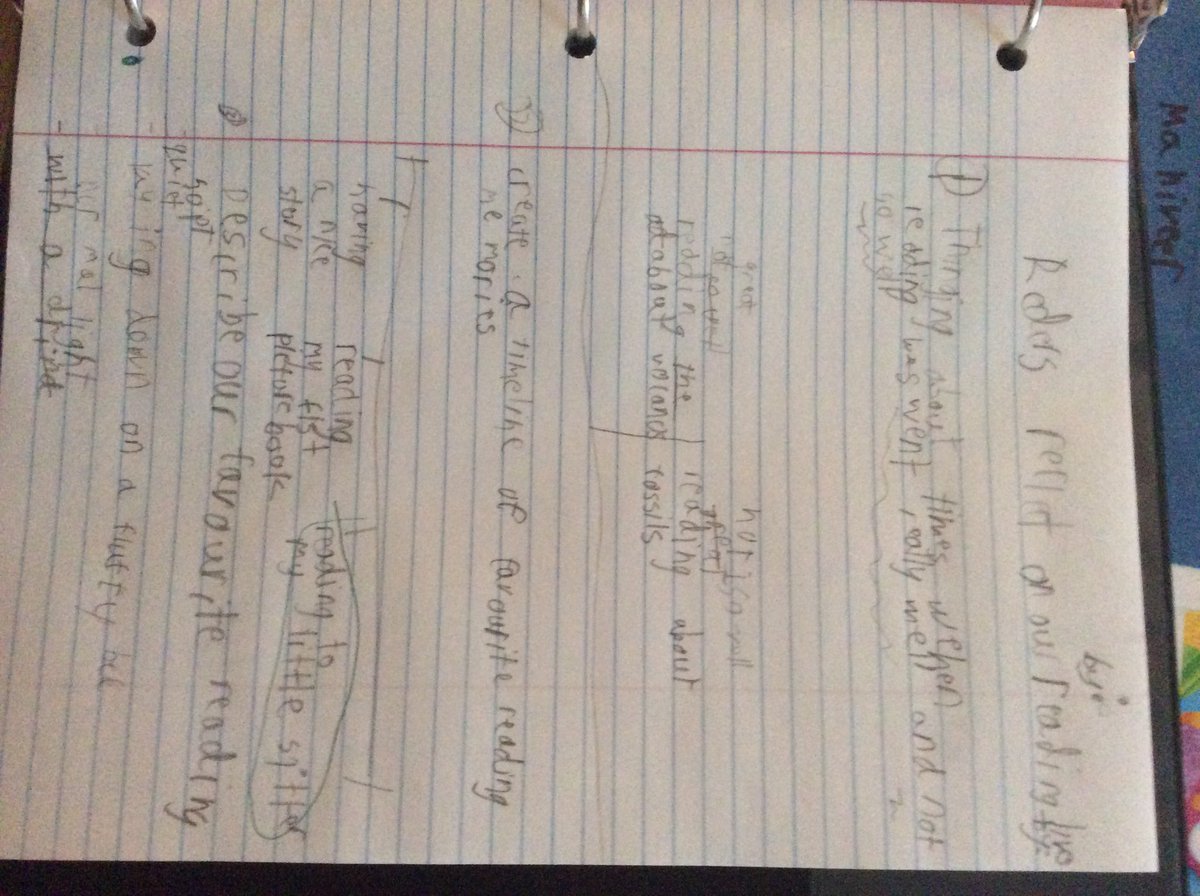 Ma hirer
Redrs reflct on our reading live
by:
① Thinging about times wehen
reading was went really well and not
so well
great
not
reading the
about volcanos
not so well
reading about
fossils
② create a timeline of favourite reading
memories
having
a nice
story
reading
my fist
picture book
reading to
my little sitter
Describe our favourite reading
quiet
laying down on a fluffy bed
normal light
with a